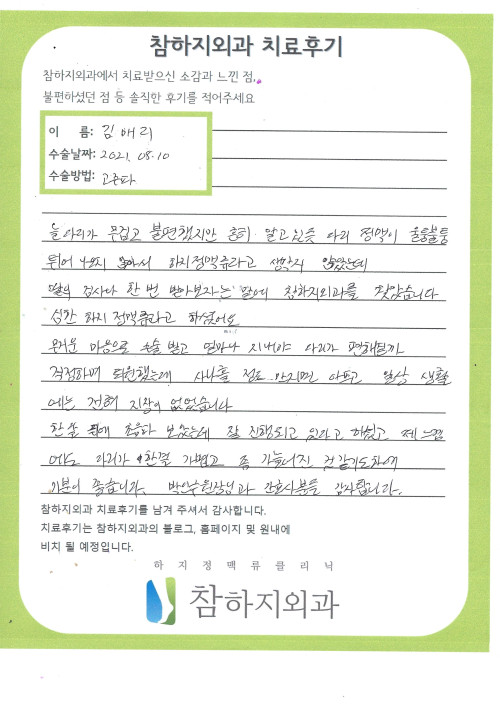 참하지외과 치료후기
참하지외과에서 치료받으신 소감과 느낀 점,
불편하셨던 점 등 솔직한 후기를 적어주세요
이 름: 김애리
수술날짜: 2021. 08.10
수술방법: 고주파
늘 다리가 무겁고 불편했지만 흔히 알고 있듯 다리 정맥이 울퉁불퉁
튀어 나오지 않아서 하지정맥류라고 생각지 않았는데
검사나 한 번 받아보자는 말에 참하지외과를 찾았습니다
심한 하지정맥류라고 하셨어요
무거운 마음으로 수술 받고 얼마나 지나야 다리가 편해질까
걱정하며 퇴원했는데 사나흘 정도 만지면 아프고 일상 생활
에는 전혀 지장이 없었습니다
한 달 뒤에 초음파 보았는데 잘 진행되고 있다고 하셨고 제 느낌
에도 다리가 한결 가볍고 좀 가늘어진 것 같기도하여
기분이 좋습니다. 원장님과 간호사분들 감사합니다.
참하지외과 치료후기를 남겨 주셔서 감사합니다.
치료후기는 참하지외과의 블로그, 홈페이지 및 원내에
비치 될 예정입니다.
하지정맥류클리닉
참하지외과